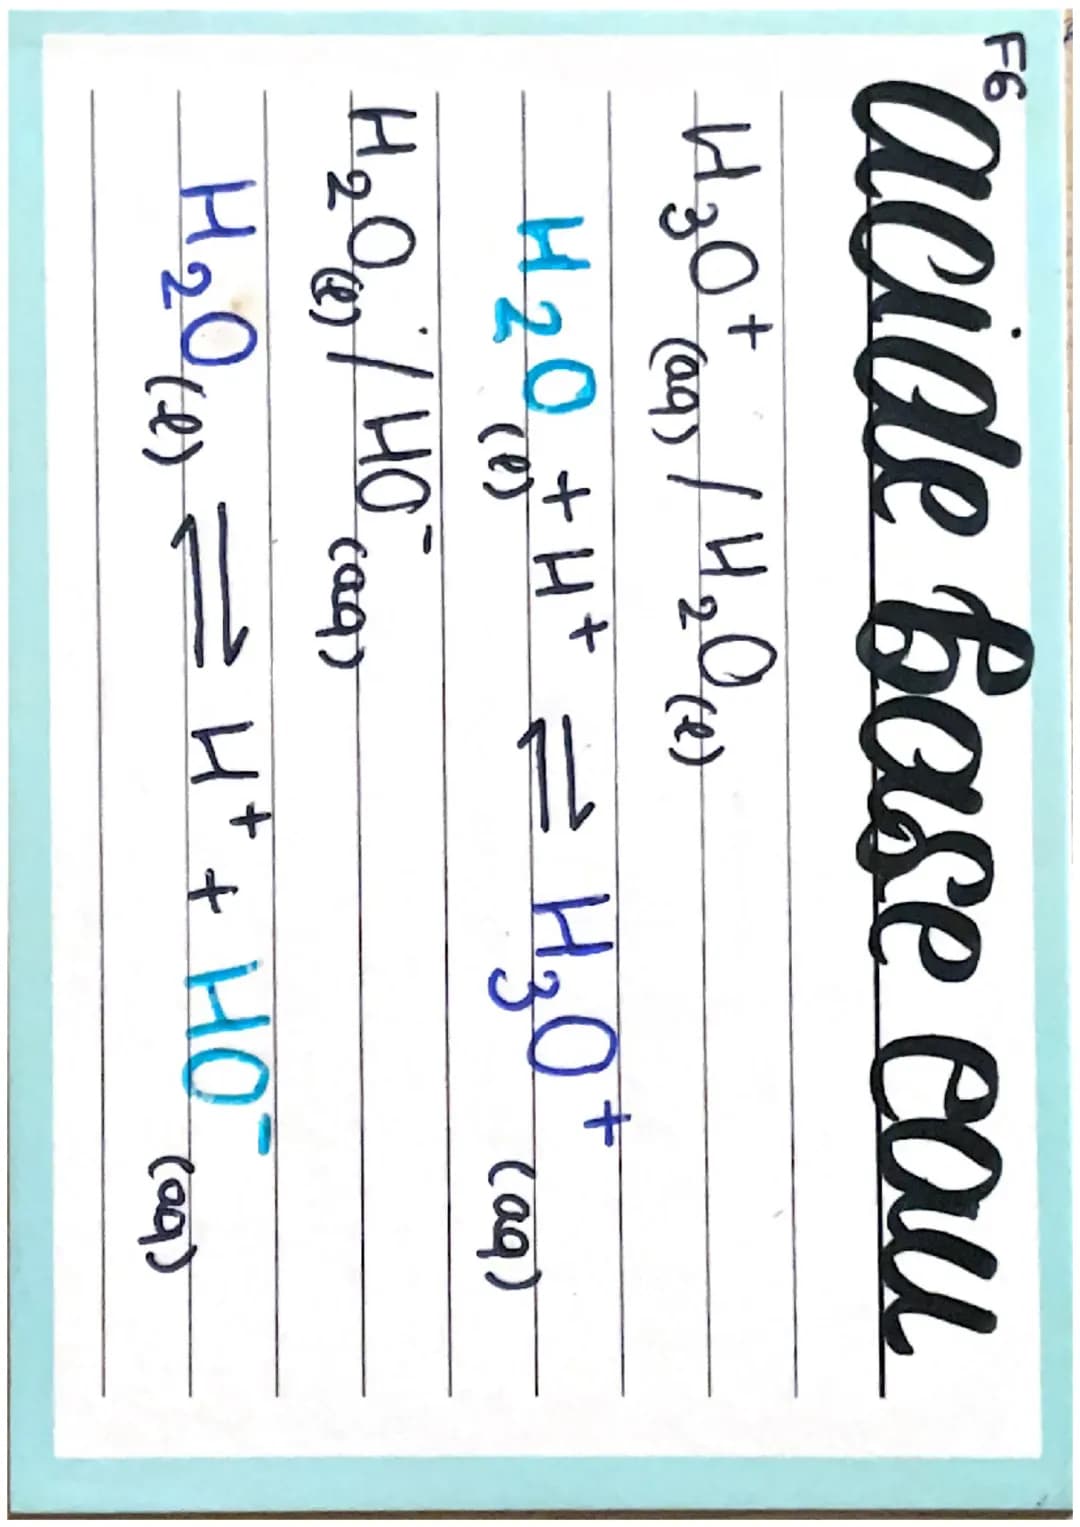 F6
acide Base eau
H₃O⁺(aq) / H₂O(l)
H₂O(l) + H⁺ ⇌ H₃O⁺(aq)
H₂O(l) / HO⁻(aq)
H₂O(l) ⇌ H⁺ + HO⁻(aq)